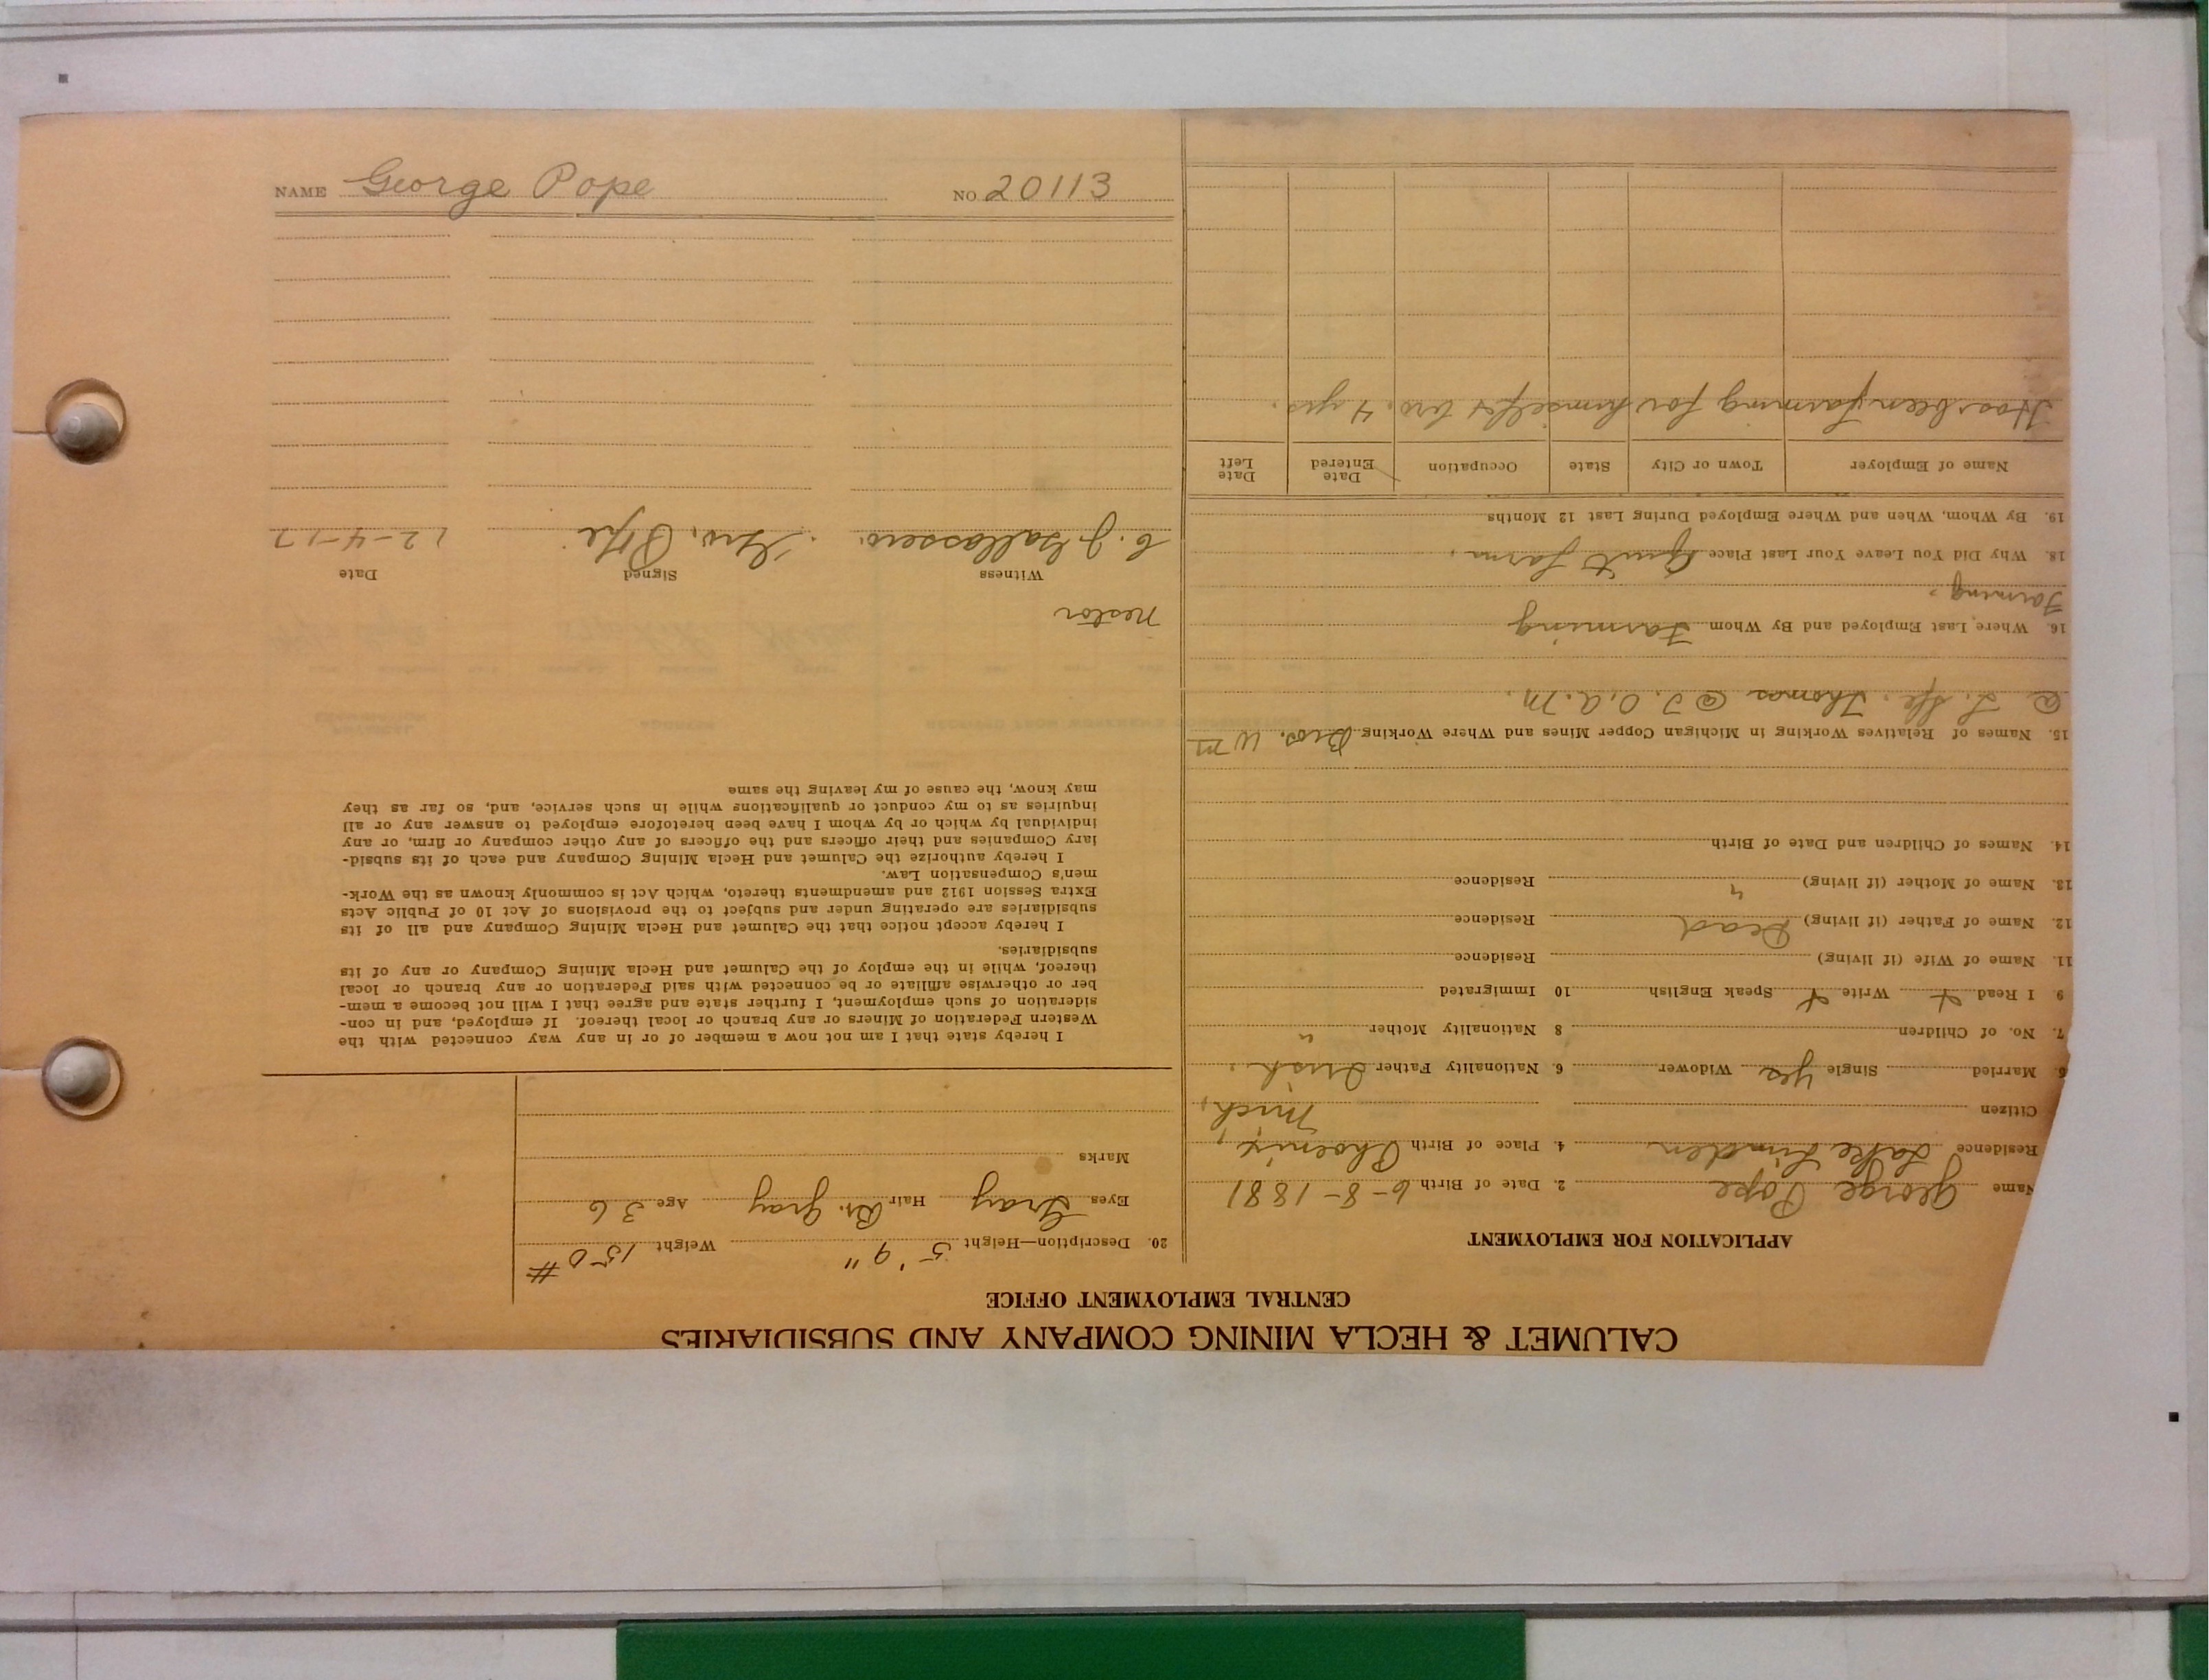 CALUMET & HECLA MINING COMPANY AND SUBSIDIARIES
CENTRAL EMPLOYMENT OFFICE
APPLICATION FOR EMPLOYMENT
Name George Pope 2. Date of Birth 6-8-1881
Residence Lake Linden 4. Place of Birth Phoenix,
Citizen Mich,
Married Single yes Widower 6. Nationality Father Irish.
7. No. of Children 8 Nationality Mother "
9 I Read + Write + Speak English 10 Immigrated
11. Name of Wife (if living) Residence
12. Name of Father (if living) Dead Residence
13. Name of Mother (if living) " Residence
14. Names of Children and Date of Birth
15. Names of Relatives Working in Michigan Copper Mines and Where Working Bros. Wm
@ L. Thomas @ T. O. a. m.
16. Where Last Employed and By Whom Farming
Farming.
18. Why Did You Leave Your Last Place Quit farm.
19. By Whom, When and Where Employed During Last 12 Months
Name of Employer Town or City State Occupation Date Entered Date Left
Has been farming for himself & bro. 4 yrs.
20. Description—Height 5' 9" Weight 150 #
Eyes Gray Hair Br. Gray Age 36
Marks
I hereby state that I am not now a member of or in any way connected with the
Western Federation of Miners or any branch or local thereof. If employed, and in con-
sideration of such employment, I further state and agree that I will not become a mem-
ber or otherwise affiliate or be connected with said Federation or any branch or local
thereof, while in the employ of the Calumet and Hecla Mining Company or any of its
subsidiaries.
I hereby accept notice that the Calumet and Hecla Mining Company and all of its
subsidiaries are operating under and subject to the provisions of Act 10 of Public Acts
Extra Session 1912 and amendments thereto, which Act is commonly known as the Work-
men's Compensation Law.
I hereby authorize the Calumet and Hecla Mining Company and each of its subsid-
iary Companies and their officers and the officers of any other company or firm, or any
individual by which or by whom I have been heretofore employed to answer any or all
inquiries as to my conduct or qualifications while in such service, and, so far as they
may know, the cause of my leaving the same
Nestor
Witness Signed Date
C. J. Gallassero. Geo. Pope 12-4-17
NAME George Pope NO. 20113